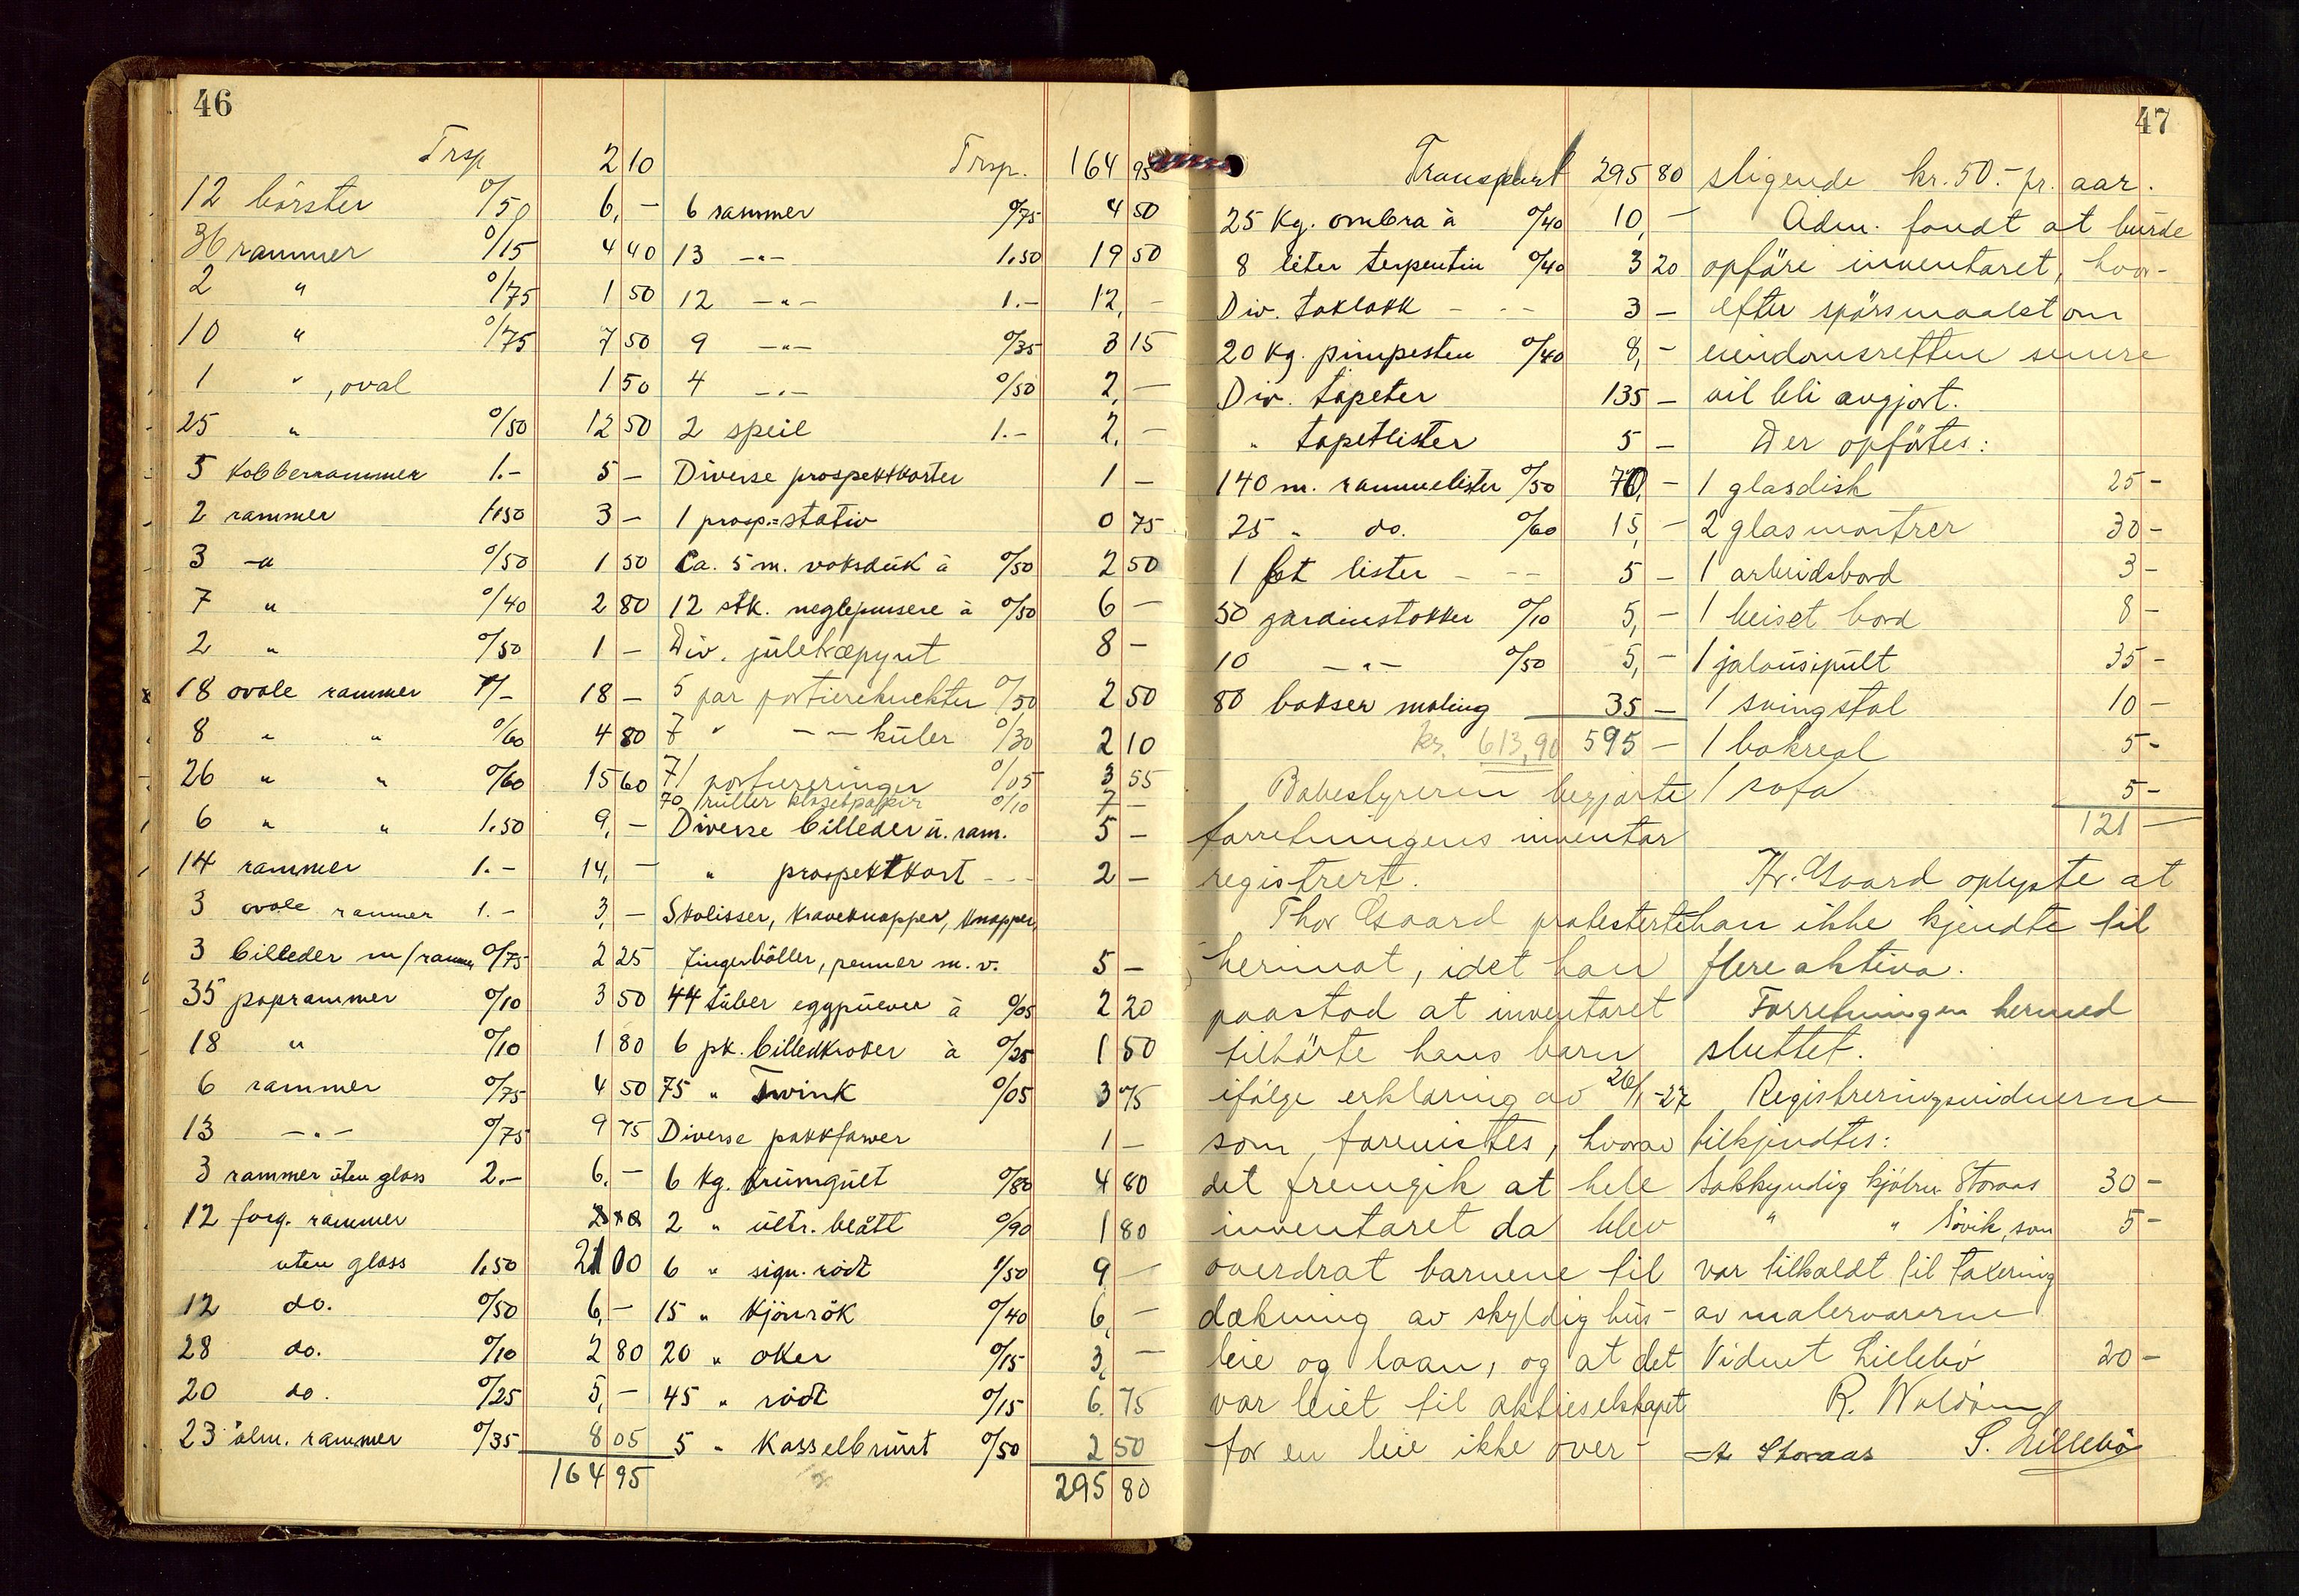 46
Trsp 2 10
12 börster 0/50 6,-
36 rammer 0/15 4 40
2 " 0/75 1 50
10 " 0/75 7 50
1 ", oval 1 50
25 " 0/50 12 50
5 kobberrammer 1.- 5 -
2 rammer 1.50 3 -
3 -"- 0/50 1 50
7 " 0/40 2 80
2 " 0/50 1 -
18 ovale rammer 1/- 18 -
8 " " 0/60 4 80
26 " " 0/60 15 60
6 " " 1.50 9,-
14 rammer 1.- 14,-
3 ovale rammer 1.- 3,-
3 billeder m/rammer 0/75 2 25
35 paprammer 0/10 3 50
18 " 0/10 1 80
6 rammer 0/75 4 50
13 -"- 0/75 9 75
3 rammer üten glass 2.- 6,-
12 forg. rammer
uten glass 1.50 21 00
12 do. 0/50 6,-
28 do. 0/10 2 80
20 do. 0/25 5,-
23 alm. rammer 0/35 8 05
164 95
Trsp. 164 95
6 rammer 0/75 4 50
13 -"- 1.50 19 50
12 -"- 1.- 12,-
9 -"- 0/35 3 15
4 -"- 0/50 2,-
2 speil 1.- 2,-
Diverse prospektkorter 1 -
1 prosp.=stativ 0 75
Ca. 5 m. voksdük à 0/50 2 50
12 stk. neglepussere à 0/50 6 -
Div. jülekrepynt 8 -
5 par portiereknekter 0/50 2 50
7 " -"- küler 0/30 2 10
71 portiereringer 0/05 3 55
70 rüller klosetpappir 0/10 7 -
Diverse billeder ü. ram. 5 -
" prospektkort - - - 2 -
Skolisser, kraveknapper, knapper,
Fingerböller, penner m. v. 5 -
44 tüber eggpülver à 0/05 2 20
6 pk. billedkroker à 0/25 1 50
75 " Twink 0/05 3 75
Diverse pakkfarver 1 -
6 kg. krümgült 0/80 4 80
2 " ültr. blått 0/90 1 80
6 " sign. rödt 1/50 9 -
15 " kjönrök 0/40 6,-
20 " oker 0/15 3,-
45 " rödt 0/15 6.75
5 " Kasselbrünt 0/50 2 50
295 80
47
Transport 295 80
25 kg. ombra à 0/40 10,-
8 liter terpentin 0/40 3 20
Div. taklakk - - - 3 -
20 kg. pimpesten 0/40 8,-
Div. tapeter 135 -
" tapetlister 5 -
140 m. rammelister 0/50 70,-
25 " do. 0/60 15,-
1 fat lister - - - 5 -
50 gardinstokker 0/10 5,-
10 -"- 0/50 5,-
80 bokser maling 35 -
kr. 613,90 595 -
Bobestyreren begjærte
forretningens inventar
registrert.
Thor Gaard protesterte
herimot, idet han
paastod at inventaret
tilhörte hans barn
ifölge erklæring av 26/1-27
som forevistes, hvorav
det fremgik at hele
inventaret da blev
overdrat barnene til
dækning av skyldig hüs-
leie og laan, og at det
var leiet til aktieselskapet
for en leie ikke over-
stigende kr. 50.- pr. aar.
Adm. fandt at bürde
opföre inventaret, hvor-
efter spörsmaalet om
eiendomsretten senere
vil bli avgjort.
Der opförtes:
1 glasdisk 25 -
2 glasmontrer 30 -
1 arbeidsbord 3 -
1 beiset bord 8 -
1 jalousipült 35 -
1 svingstol 10 -
1 bokreol 5 -
1 sofa 5 -
121 -
Th. Gaard oplyste at
han ikke kjendte til
flere aktiva.
Forretningen hermed
sluttet.
Registreringsvidnerne
tilkjendtes:
Sakkyndig kjöbm. Storaas 30 -
" " Sövik, som 5 -
var tilkaldt til taxering
av malervarerne
Vidnet Lillebö 20 -
R. Waldöm
A Storaas S. Lillebö